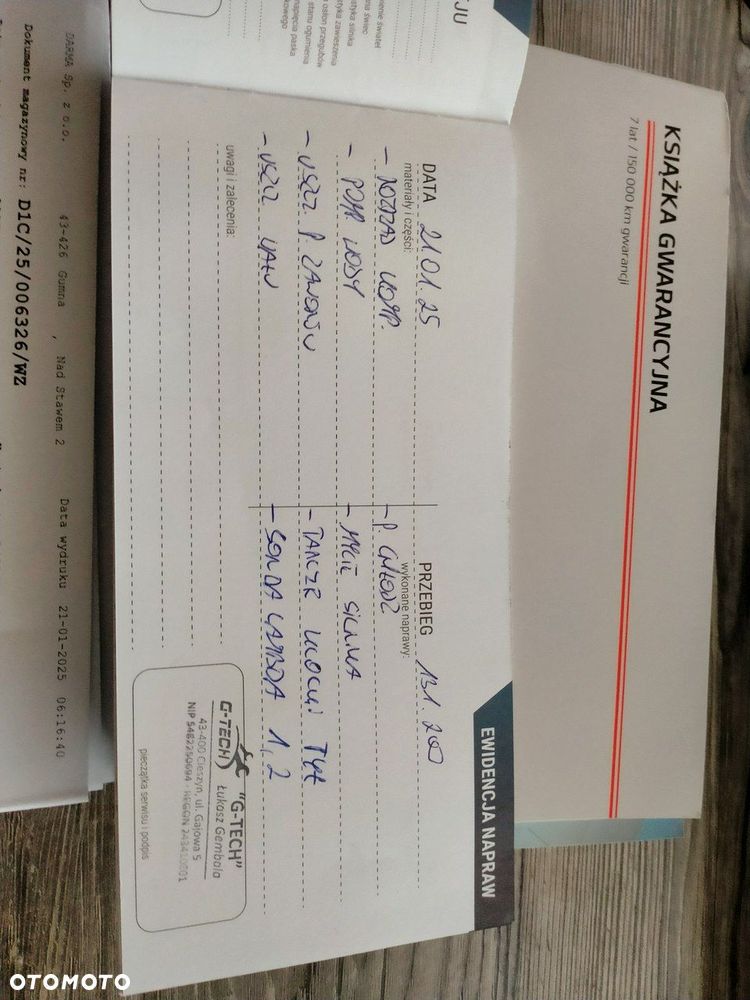 KSIĄŻKA GWARANCYJNA
7 lat / 150 000 km gwarancji
EWIDENCJA NAPRAW
DATA 21.01.25 PRZEBIEG 131.200
materiały i części: wykonane naprawy:
- ROZRZĄD KOMP - P. CHŁODZ
- POMP WODY - MYCIE SILNIKA
- USZCZ. P. ZAWORÓW - TARCZE KLOCKI TYŁ
- USZCZ - SONDA LAMBDA 1,2
uwagi i zalecenia:
"G-TECH"
G-TECH Łukasz Gembala
43-400 Cieszyn, ul. Gajowa 5
NIP REGON
pieczątka serwisu i podpis
DARMA Sp. z o.o. 43-426 Gumna , Nad Stawem 2 Data wydruku 21-01-2025 06:16:40
Dokument magazynowy nr: D1C/25/006326/WZ
OTOMOTO